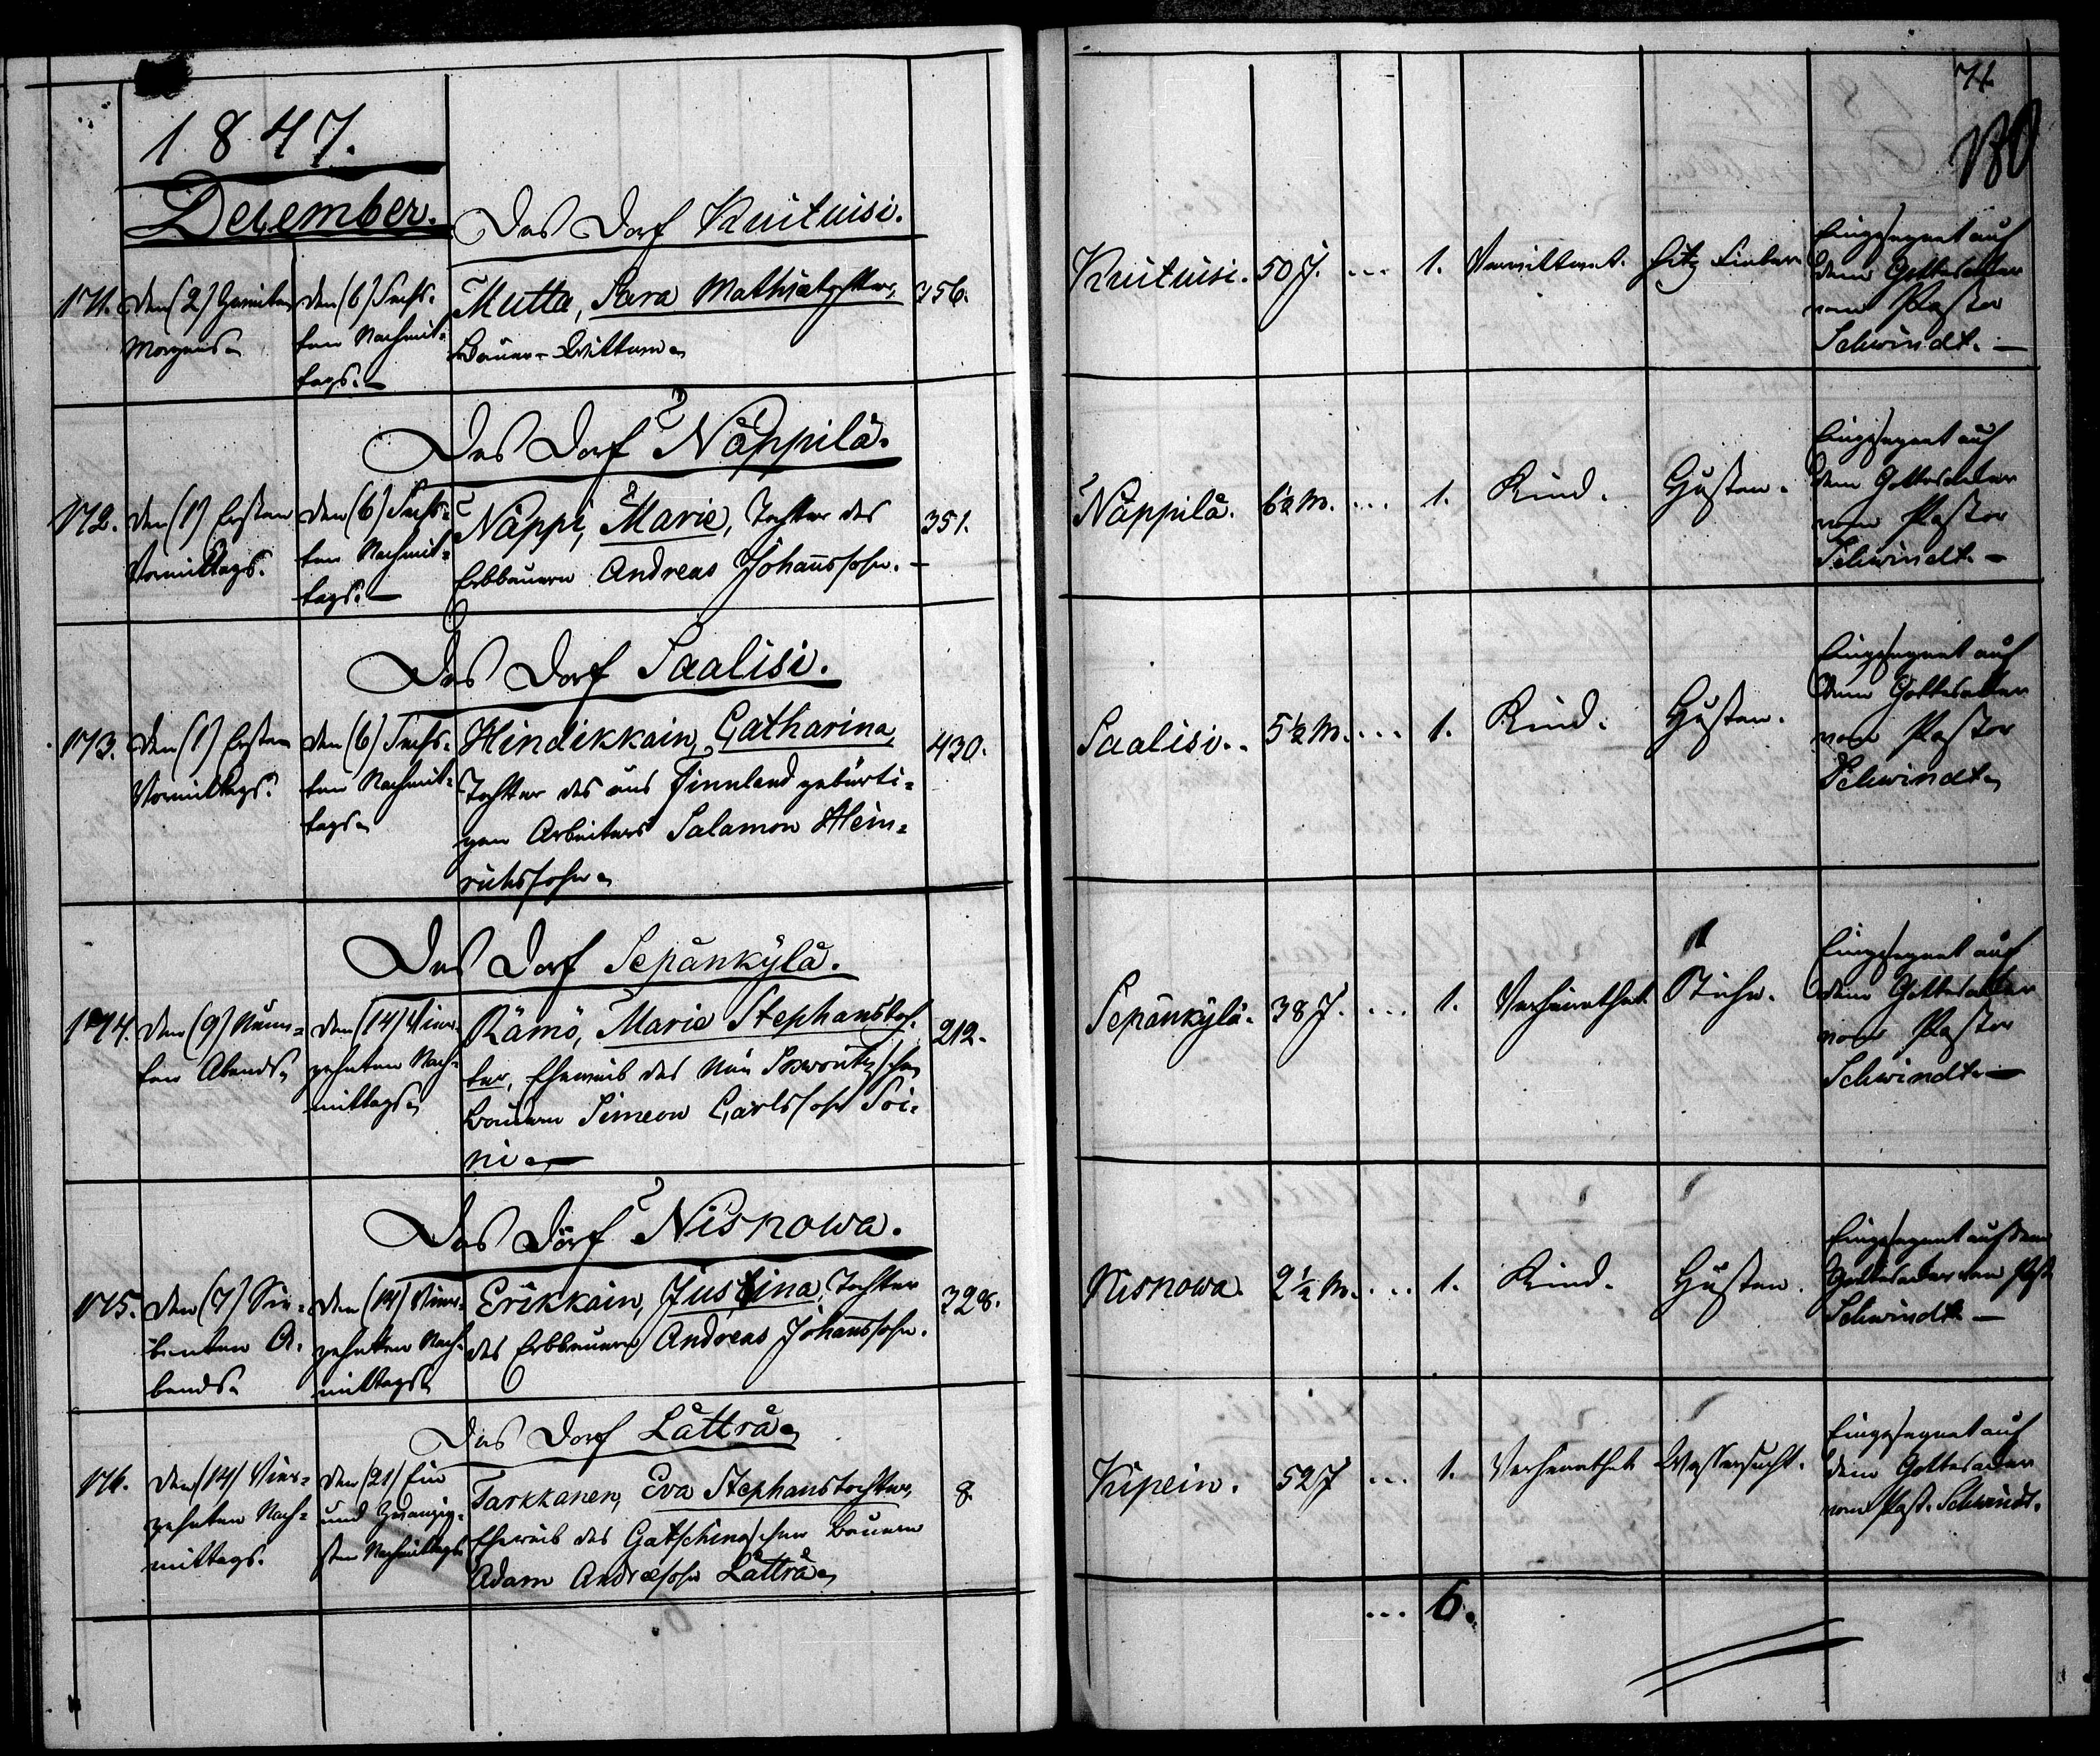 1847.
December.
Das Dorf Kuituisi.
171. den (2) Zweiten
Morgens
den (6) Sechs-
ten Nachmit-
tags.
Mutta, Sara Mathiastochter,
Bauer-Wittwe
356.
Das Dorf Näppilä.
172. den (1) Ersten
Vormittags.
den (6) Sechs-
ten Nachmit-
tags.
Näppi, Marie, Tochter des
Erbbauern Andreas Johannssohn.
351.
Das Dorf Saalisi.
173. den (1) Ersten
Vormittags.
den (6) Sechs-
ten Nachmit-
tags
Hindikkain, Catharina,
Tochter des aus Finnland gebürti-
gen Arbeiters Salamon Hein-
richssohn
430.
Das Dorf Sepänkylä.
174. den (9) Neun-
ten Abends
den (14) Vier-
zehnten Nach-
mittags
Rämö, Maria Stephanstoch-
ter, Eheweib des
Bauern Simeon Carlssohn Soi-
ni
212.
Das Dorf Nisnowa.
175. den (7) Sie-
benten A-
bends
den (14) Vier-
zehnten Nach-
mittags
Erikkain, Justina, Tochter
des Erbbauern Andreas Johannssohn.
328.
Das Dorf Lätträ
176. den (14) Vier-
zehnten Nach-
mittags.
den (21) Ein
und Zwanzig-
sten Nachmittags
Tarkkanen, Eva Stephanstochter,
Eheweib des Gatschinaschen Bauern
Adam Andreassohn Lätträ
8.
71.
180
Kuituisi. 50 J. ... 1. Verwittwet. Hitz Fieber
Eingesegnet auf
dem Gottesacker
vom Pastor
Schwindt.
Näppilä. 6½ M. ... 1. Kind. Husten.
Eingesegnet auf
dem Gottesacker
vom Pastor
Schwindt.
Saalisi. 5½ M. ... 1. Kind. Husten.
Eingesegnet auf
dem Gottesacker
vom Pastor
Schwindt
Sepänkylä. 38 J. ... 1. Verheirathet
Eingesegnet auf
dem Gottesacker
vom Pastor
Schwindt
Nisnowa. 2½ M. ... 1. Kind. Husten.
Eingesegnet auf dem
Gottesacker vom Past.
Schwindt.
Kipein. 52 J ... 1. Verheirathet Wassersucht.
Eingesegnet auf
dem Gottesacker
vom Past. Schwindt.
... 6.